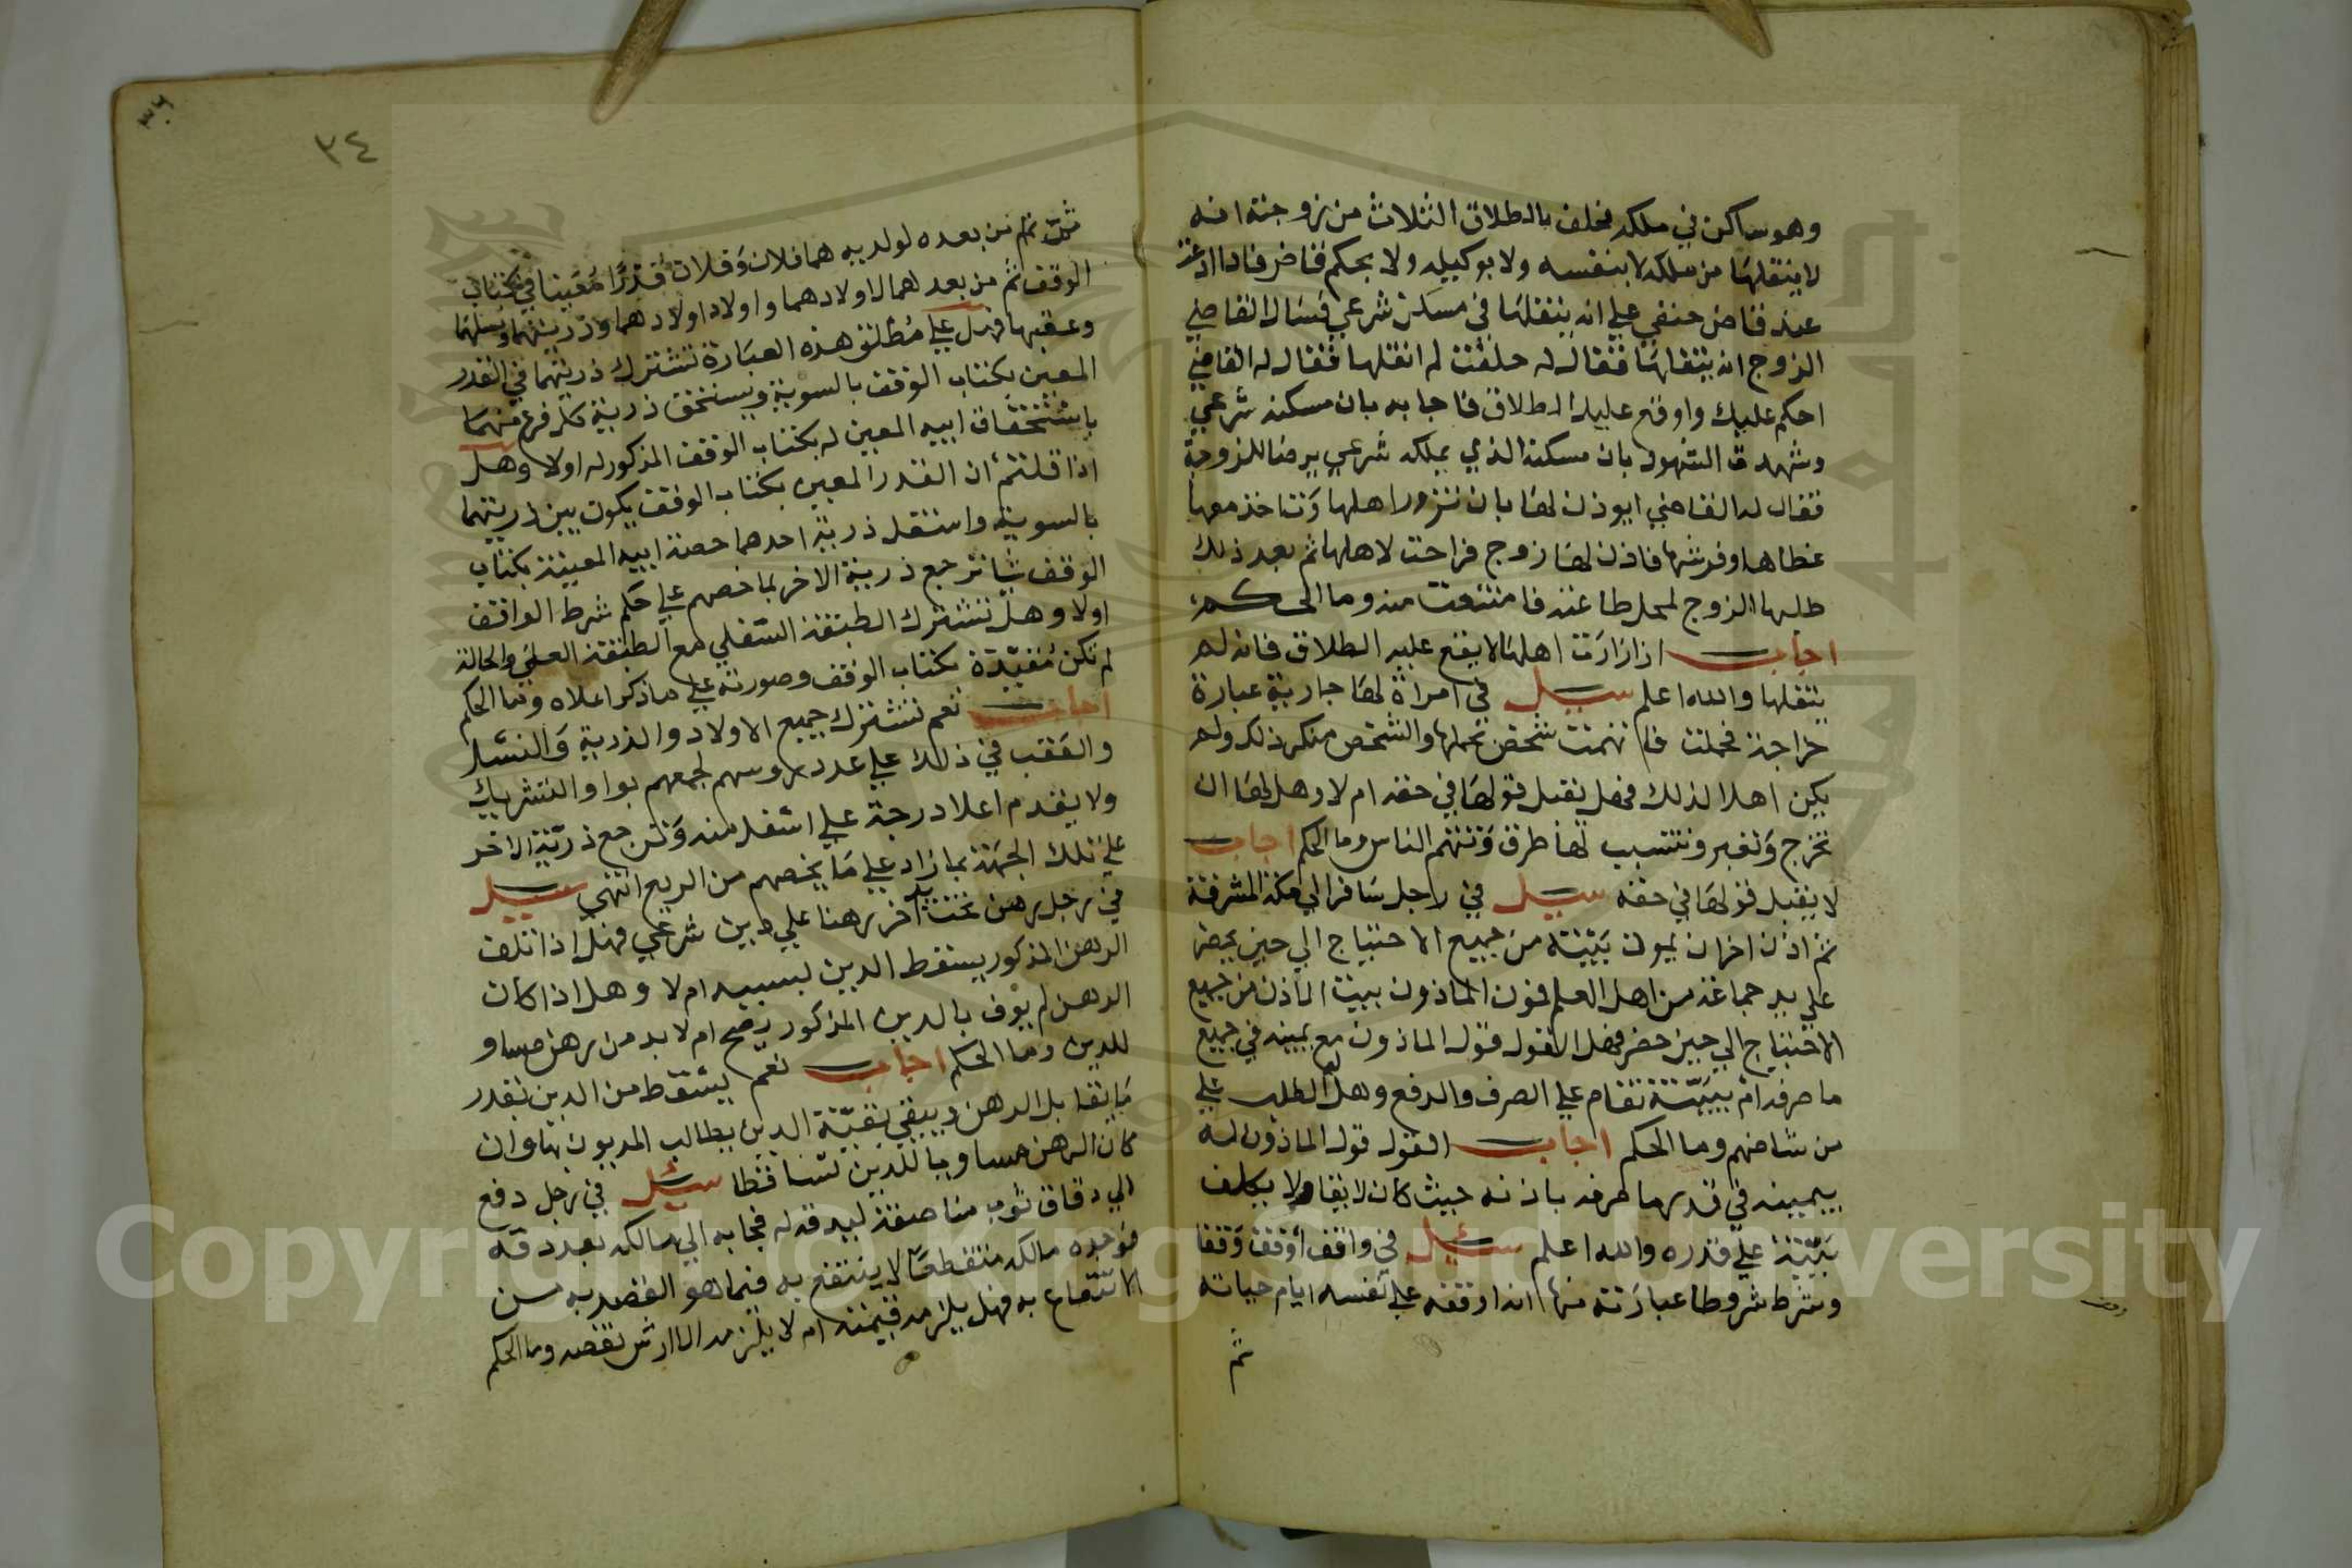 وهو ساكن في ملكه فحلف بالطلاق الثلاث من زوجته انه
لا ينقلها من ملكه لا بنفسه ولا بوكيله ولا بحكم قاض فاذا ادعت
عند قاض حنفي علي انه ينقلها في مسكن شرعي فسال القاضي
الزوج ان ينقلها فقال له حلفت لم انقلها فقال له القاضي
احكم عليك واوقع عليك الطلاق فاجابه بان مسكنه شرعي
وشهدت الشهود بان مسكنه الذي يملكه شرعي برضا الزوجة
فقال له القاضي ايوذن لها بان تزور اهلها وتاخذ معها
غطاها وفرشها فاذن لها زوج فراحت لاهلها ثم بعد ذلك
طلبها الزوج لمحل طاعته فامتنعت منه وما الحكم
اجاب اذا زارت اهلها لا يقع عليه الطلاق فانه لم
ينقلها والله اعلم سيل في امراة لها جارية عبارة
خراجة فحملت فاتهمت شخص بحملها والشخص منكر ذلك ولم
يكن اهلا لذلك فهل يقبل قولها في حقه ام لا وهل لها ان
تخرج وتغير وتتسبب لها طرق وتتهم الناس وما الحكم اجاب
لا يقبل قولها في حقه سيل في راجل سافر الي مكة المشرفة
ثم اذن اخر ان يمون بيته من جميع الاحتياج الي حين يحضر
علي يد جماعة من اهل العلم فمون الماذون بيت الاذن من جميع
الاحتياج الي حين حضر فهل القول قول الماذون مع يمينه في جميع
ما صرفه ام ببينة تقام علي الصرف والدفع وهل له الطلب علي
من شا منهم وما الحكم اجاب القول قول الماذون له
بيمينه في قدر ما صرفه باذنه حيث كان لايقا ولا يكلف
بينة علي قدره والله اعلم سئيل في واقف أوقف وقفا
وشرط شروطا عبارته فيها انه اوقفه علي نفسه ايام حياته
ثم
٣٤
ثم من بعده لولديه هما فلان وفلان قدرا معينا في كتاب
الوقف ثم من بعدهما لاولادهما واولاد اولادهما وذريتهما ونسلهما
وعقبهما فهل علي مطلق هذه العبارة تشترك ذريتهما في القدر
المعين بكتاب الوقف بالسوية ويستحق ذرية كل فرع منهما
باستحقاق ابيه المعين له بكتاب الوقف المذكور له اولا وهل
اذا قلتم ان القدر المعين بكتاب الوقف يكون بين ذريتهما
بالسوية واستقل ذرية احدهما حصة ابيه المعينة بكتاب
الوقف شا ترجع ذرية الاخر بما خصهم علي حكم شرط الواقف
اولا وهل تشترك الطبقة السفلي مع الطبقة العلي والحالة
لم تكن مقيدة بكتاب الوقف وصورته علي ما ذكر اعلاه وما الحكم
اجاب نعم تشترك جميع الاولاد والذرية والنسل
والعقب في ذلك علي عدد روسهم لجمعهم بواو التشريك
ولا يقدم اعلا درجة علي اسفل منه وترجع ذرية الاخر
علي تلك الجهة بما زاد علي ما يخصهم من الريع انتهي سيل
في رجل رهن تحت يد آخر رهنا علي دين شرعي فهل اذا تلف
الرهن المذكور يسقط الدين بسببه ام لا وهل اذا كان
الرهن لم يوف بالدين المذكور يصح ام لا بد من رهن مساو
للدين وما الحكم اجاب نعم يسقط من الدين بقدر
ما يقابل الرهن ويبقي بقية الدين يطالب المديون بها وان
كان الرهن مساويا للدين تساقطا سئل في رجل دفع
الي دقاق ثوب مناصفة ليدقه له فجا به الي مالكه بعد دقه
فوجده مالكه متقطعا لا ينتفع به فيما هو القصد به من
الانتفاع به فهل يلزمه قيمته ام لا يلزمه الا ارش نقصه وما الحكم
Copyright © King Saud University